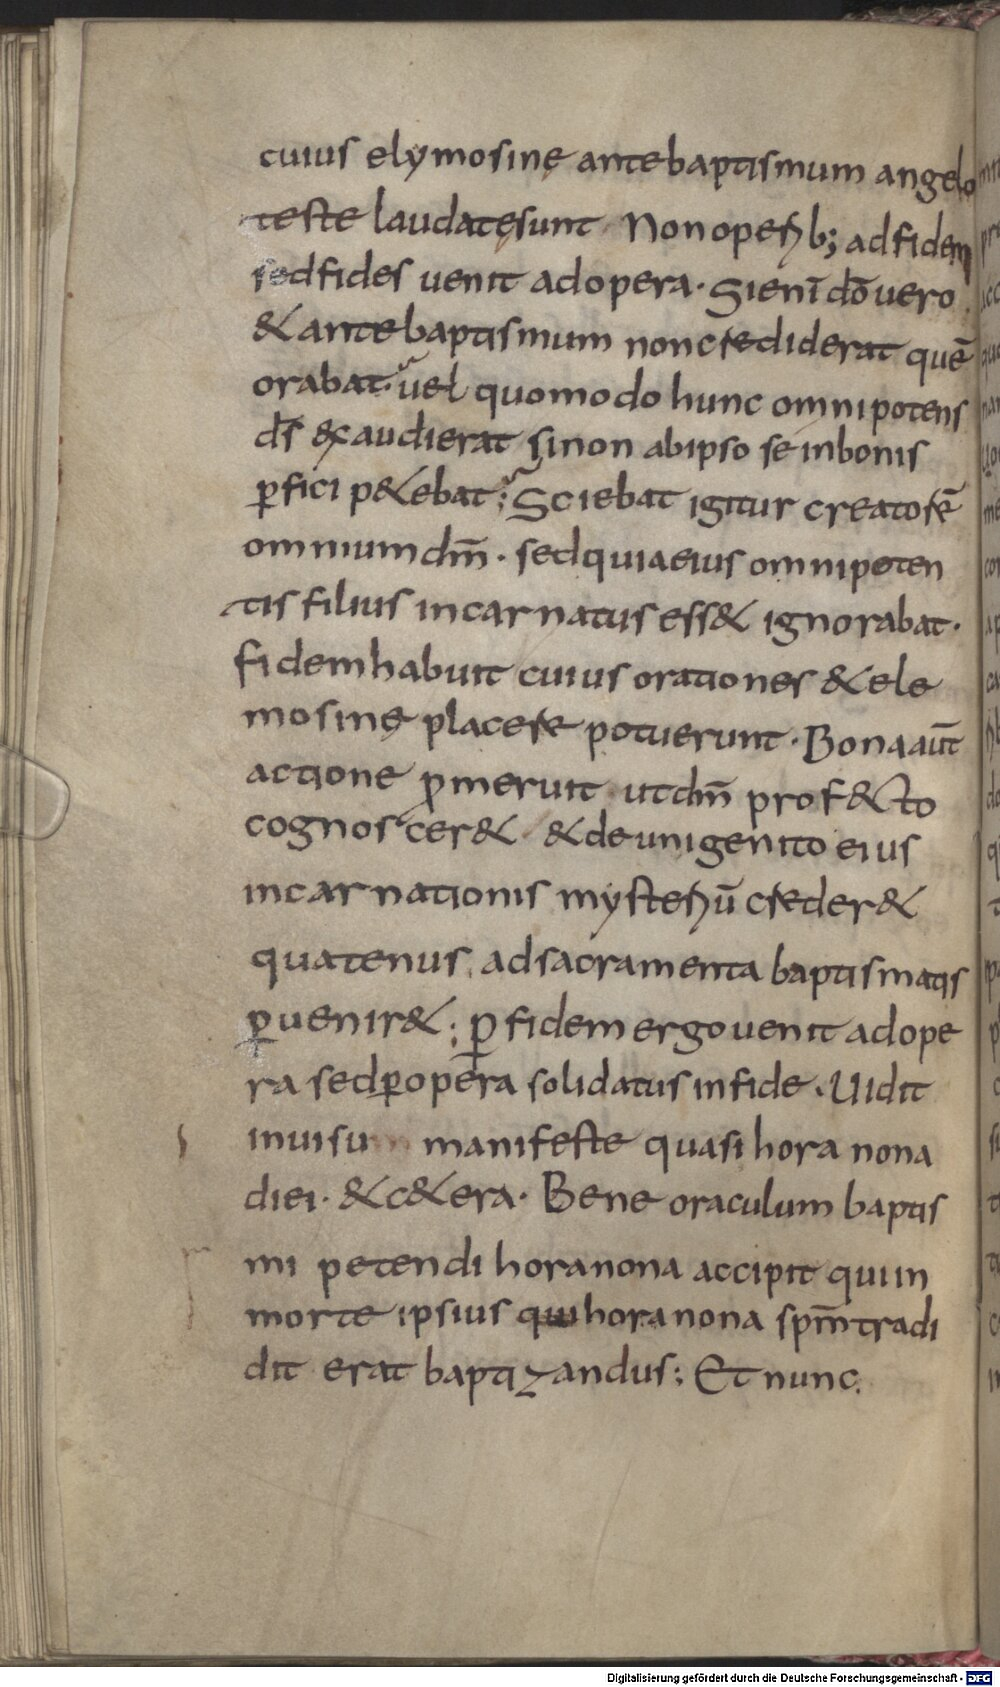 cuius elymosinę ante baptismum angelo
teste laudatę sunt Non operib; ad fidem
sed fides uenit ad opera. Si enī dō uero
& ante baptismum non crediderat quē
orabat. uel quomodo hunc omnipotens
d̄s exaudierat si non ab ipso se in bonis
ꝑfici p&ebat; Sciebat igitur creatorē
omnium dm̄. sed quia eius omnipoten
tis filius incarnatus ess& ignorabat.
fidem habuit cuius orationes & ele
mosinę placere potuerunt. Bona aūt
actione ꝓmeruit ut dm̄ prof&cto
cognoscer& & de unigenito eius
incarnationis mysteriū creder&
quatenus ad sacramenta baptismatis
ꝑuenir&; ꝑ fidem ergo uenit ad ope
ra sed ꝑ opera solidatus in fide. Uidit
in uisu manifeste quasi hora nona
diei. & c&era. Bene oraculum baptis
mi petendi hora nona accipit qui in
morte ipsius qui hora nona spm̄ tradi
dit erat baptizandus; Et nunc.
Digitalisierung gefördert durch die Deutsche Forschungsgemeinschaft - DFG